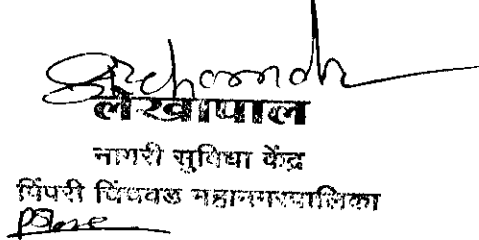 लेखापाल
नागरी सुविधा केंद्र
पिंपरी चिंचवड महानगरपालिका